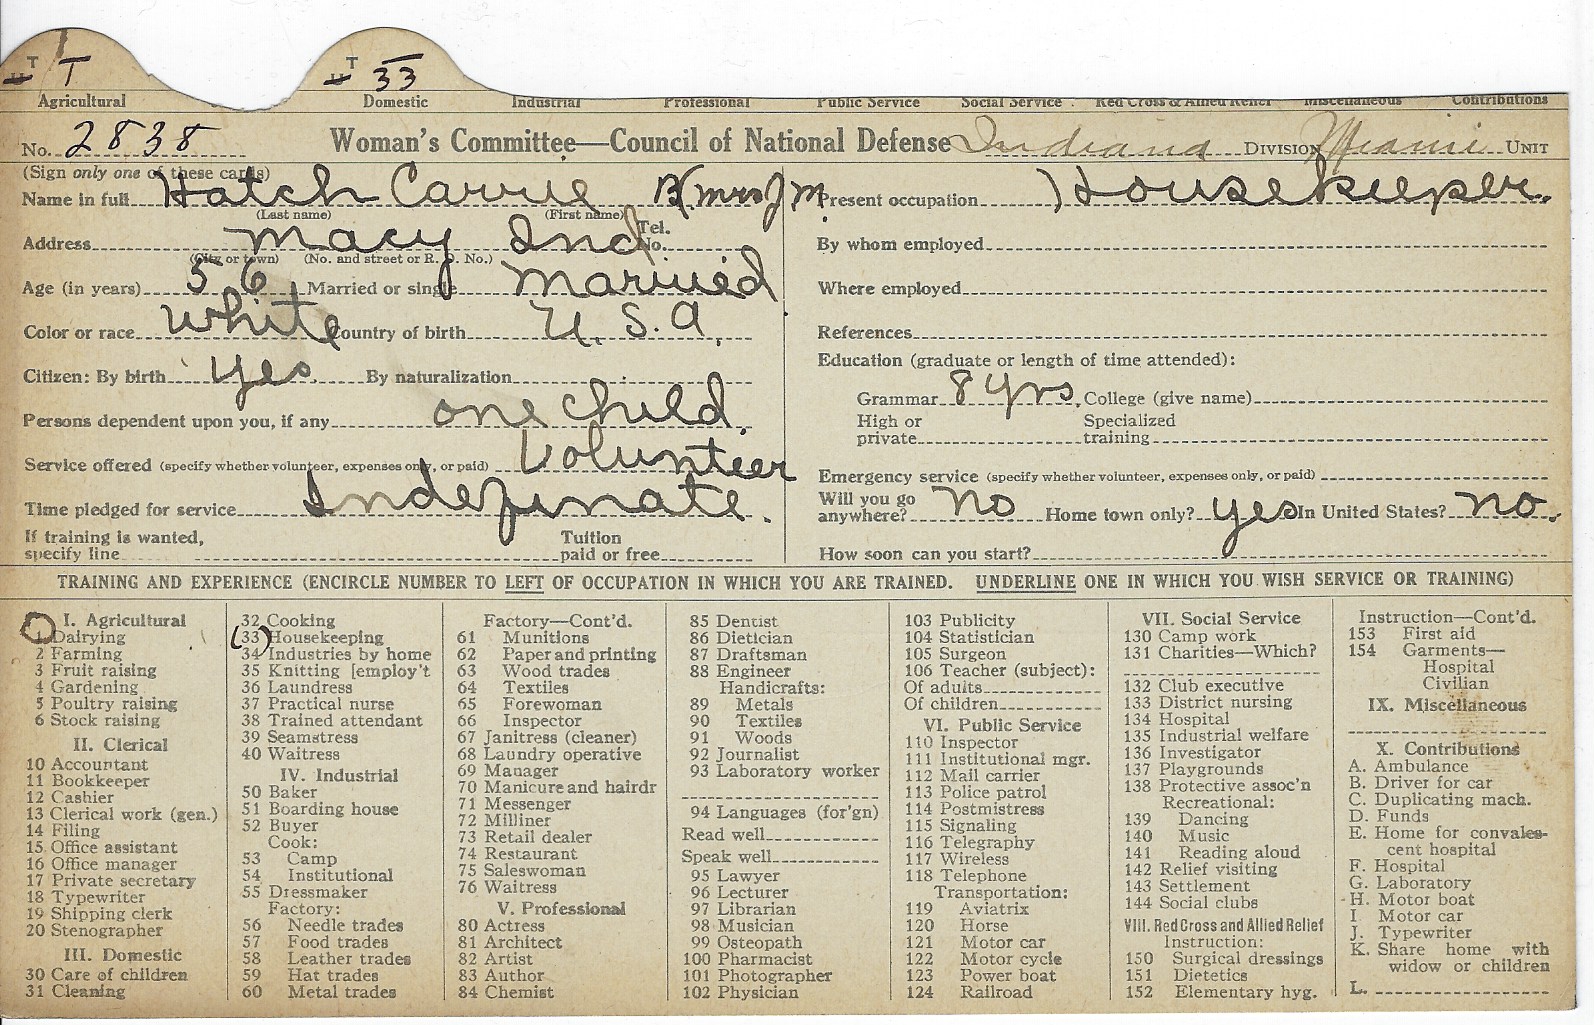 T T T 33
Agricultural Domestic Industrial Professional Public Service Social Service Red Cross & Allied Relief Miscellaneous Contributions
No. 2838 Woman's Committee—Council of National Defense Indiana DIVISION Miami UNIT
(Sign only one of these cards)
Name in full Hatch Carrie B (Mrs J M)
(Last name) (First name)
Address Macy Ind Tel. No.
(City or town) (No. and street or R. D. No.)
Age (in years) 56 Married or single Married
Color or race White Country of birth U. S. A.
Citizen: By birth yes. By naturalization
Persons dependent upon you, if any one child.
Service offered (specify whether volunteer, expenses only, or paid) Volunteer
Time pledged for service Indefinate.
If training is wanted, specify line Tuition paid or free
Present occupation Housekeeper.
By whom employed
Where employed
References
Education (graduate or length of time attended):
Grammar 8 yrs. College (give name)
High or private Specialized training
Emergency service (specify whether volunteer, expenses only, or paid)
Will you go anywhere? no Home town only? yes In United States? no.
How soon can you start?
TRAINING AND EXPERIENCE (ENCIRCLE NUMBER TO LEFT OF OCCUPATION IN WHICH YOU ARE TRAINED. UNDERLINE ONE IN WHICH YOU WISH SERVICE OR TRAINING)
I. Agricultural
1 Dairying
2 Farming
3 Fruit raising
4 Gardening
5 Poultry raising
6 Stock raising
II. Clerical
10 Accountant
11 Bookkeeper
12 Cashier
13 Clerical work (gen.)
14 Filing
15 Office assistant
16 Office manager
17 Private secretary
18 Typewriter
19 Shipping clerk
20 Stenographer
III. Domestic
30 Care of children
31 Cleaning
32 Cooking
(33) Housekeeping
34 Industries by home
35 Knitting [employ't
36 Laundress
37 Practical nurse
38 Trained attendant
39 Seamstress
40 Waitress
IV. Industrial
50 Baker
51 Boarding house
52 Buyer
Cook:
53 Camp
54 Institutional
55 Dressmaker
Factory:
56 Needle trades
57 Food trades
58 Leather trades
59 Hat trades
60 Metal trades
Factory—Cont'd.
61 Munitions
62 Paper and printing
63 Wood trades
64 Textiles
65 Forewoman
66 Inspector
67 Janitress (cleaner)
68 Laundry operative
69 Manager
70 Manicure and hairdr
71 Messenger
72 Milliner
73 Retail dealer
74 Restaurant
75 Saleswoman
76 Waitress
V. Professional
80 Actress
81 Architect
82 Artist
83 Author
84 Chemist
85 Dentist
86 Dietician
87 Draftsman
88 Engineer
Handicrafts:
89 Metals
90 Textiles
91 Woods
92 Journalist
93 Laboratory worker
94 Languages (for'gn)
Read well
Speak well
95 Lawyer
96 Lecturer
97 Librarian
98 Musician
99 Osteopath
100 Pharmacist
101 Photographer
102 Physician
103 Publicity
104 Statistician
105 Surgeon
106 Teacher (subject):
Of adults
Of children
VI. Public Service
110 Inspector
111 Institutional mgr.
112 Mail carrier
113 Police patrol
114 Postmistress
115 Signaling
116 Telegraphy
117 Wireless
118 Telephone
Transportation:
119 Aviatrix
120 Horse
121 Motor car
122 Motor cycle
123 Power boat
124 Railroad
VII. Social Service
130 Camp work
131 Charities—Which?
132 Club executive
133 District nursing
134 Hospital
135 Industrial welfare
136 Investigator
137 Playgrounds
138 Protective assoc'n
Recreational:
139 Dancing
140 Music
141 Reading aloud
142 Relief visiting
143 Settlement
144 Social clubs
VIII. Red Cross and Allied Relief
Instruction:
150 Surgical dressings
151 Dietetics
152 Elementary hyg.
Instruction—Cont'd.
153 First aid
154 Garments—
Hospital
Civilian
IX. Miscellaneous
X. Contributions
A. Ambulance
B. Driver for car
C. Duplicating mach.
D. Funds
E. Home for convales-
cent hospital
F. Hospital
G. Laboratory
H. Motor boat
I Motor car
J. Typewriter
K. Share home with
widow or children
L.